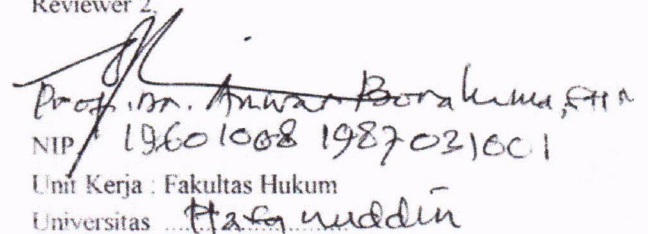 Reviewer 2,
Prof. Dr. Anwar Borahima, SH
NIP 19601008 198703 1001
Unit Kerja : Fakultas Hukum
Universitas Hasanuddin